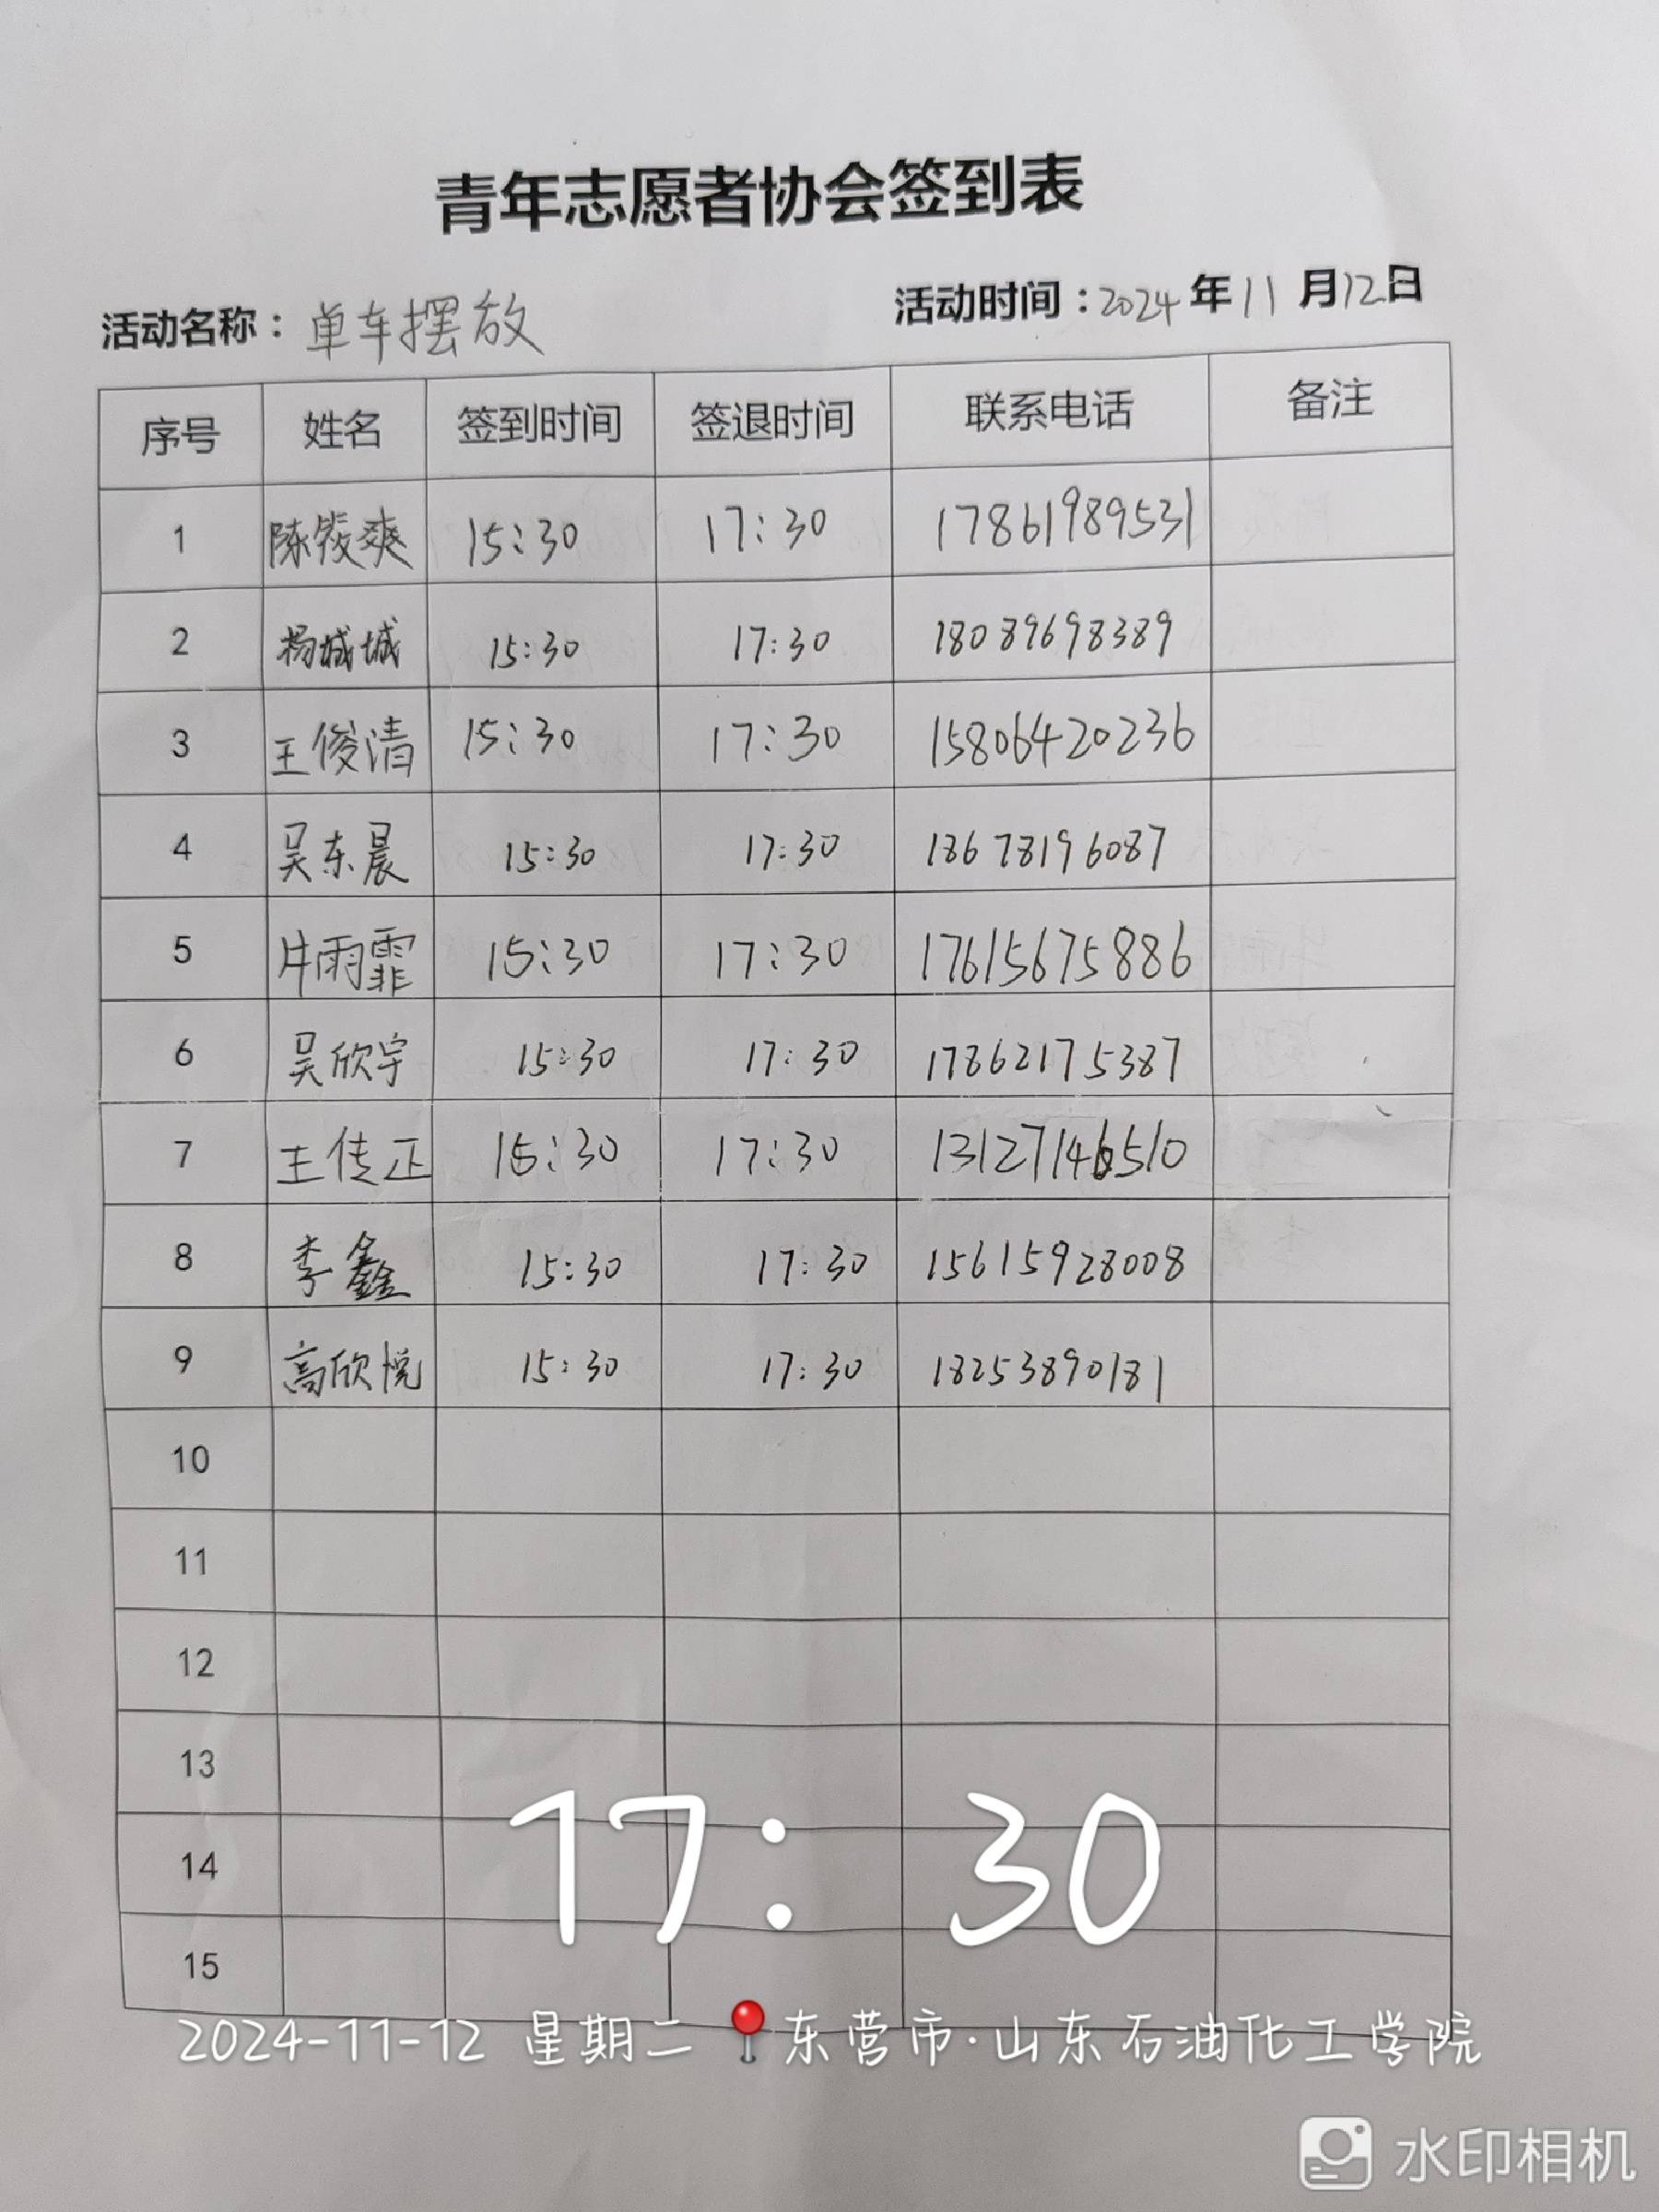 青年志愿者协会签到表
活动名称：单车摆放 活动时间：2024年11月12日
序号 姓名 签到时间 签退时间 联系电话 备注
1 陈筱爽 15:30 17:30 17861989531
2 杨城城 15:30 17:30 18089698389
3 王俊清 15:30 17:30 15806420236
4 吴东晨 15:30 17:30 18678196087
5 牛雨霏 15:30 17:30 17615675886
6 吴欣宇 15:30 17:30 17862175387
7 王传正 15:30 17:30 13127146510
8 李鑫 15:30 17:30 15615928008
9 高欣悦 15:30 17:30 18253890181
10
11
12
13
14
15
17:30
2024-11-12 星期二 东营市·山东石油化工学院
水印相机